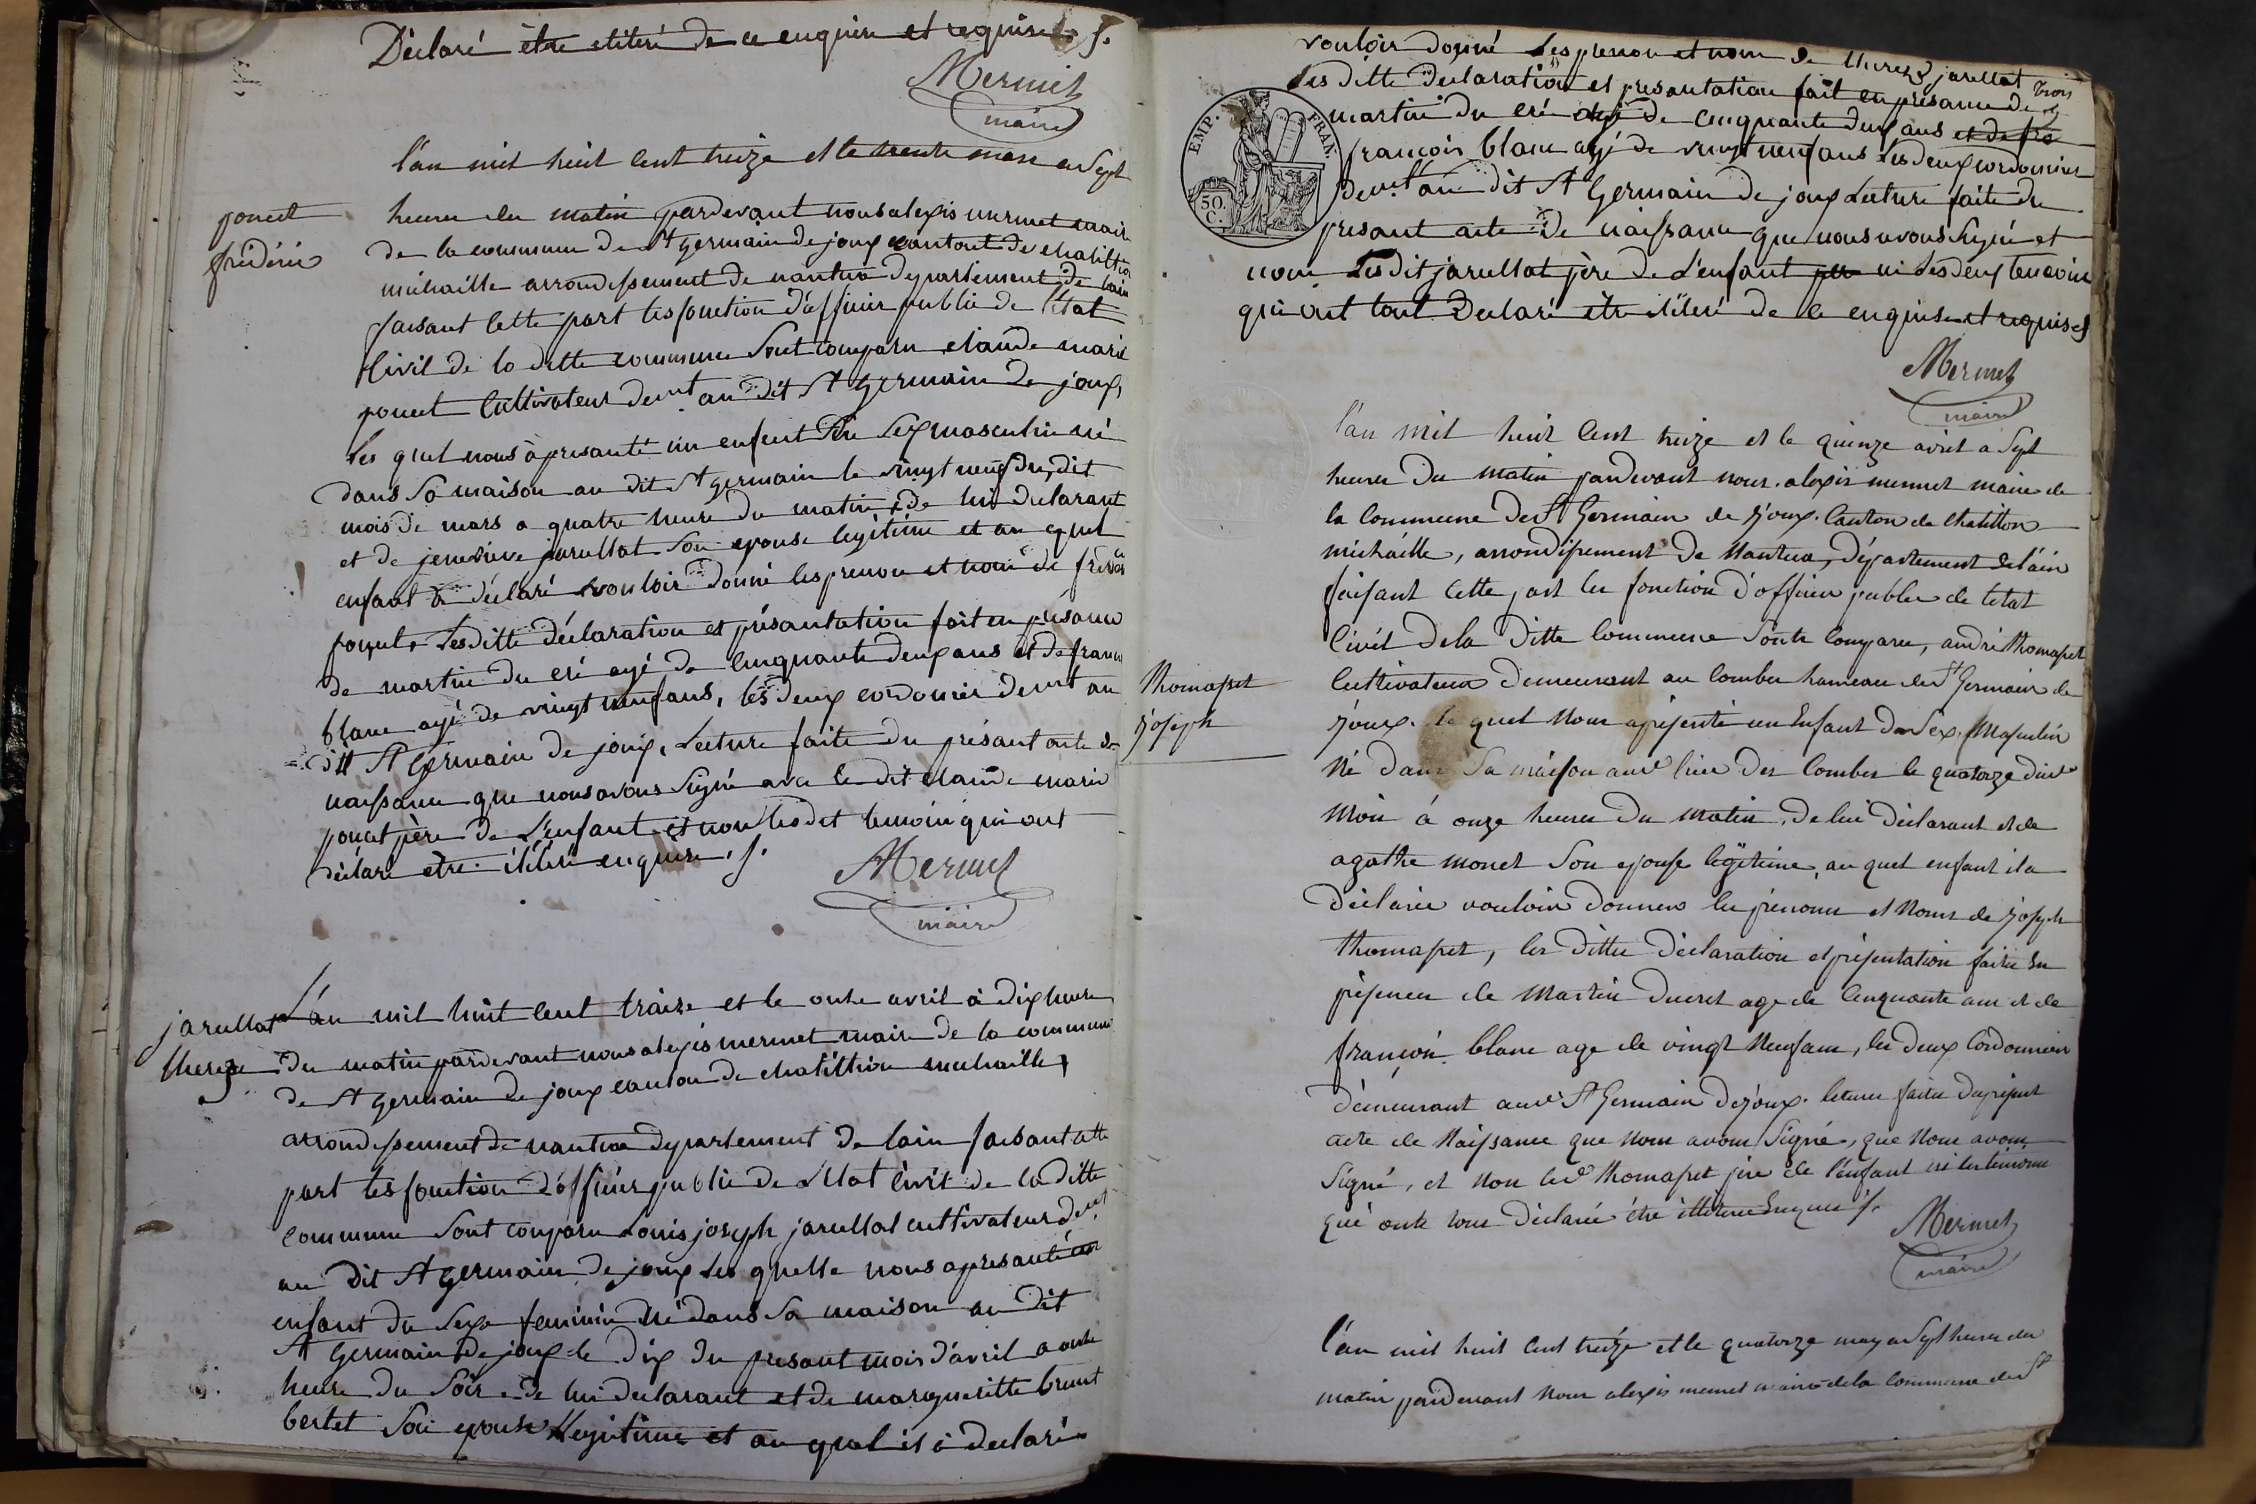 Déclaré être eliteré de ce enquire et requise /.
Mermet
maire
l'an mil huit cent treize et le trente mars a Sept
poncet
fridéric
heures du matin pardevant nous alexis mermet maire
de la commune de St germain de joux canton de chatillion
michaille arrondissement de nantua departement de lain
faisant cette part les fonction d'officier public de l'état
Civil de la ditte commune Sont comparu claude marie
poncet Cultivateur demt au dit St germain de joux
les quel nous à presanté un enfent du Sex masculin né
dans Sa maison au dit St germain le vingt neuf du dit
mois de mars a quatre heure du matin, de lui declarant
et de jenevieve jarullat Son epouse legitime et au quel
enfant à déclaré vouloir donné les prenon et nom de
poncet, Les ditte déclaration et présantation fait en présance
de martin du cré agé de cinquante deux ans et de francois
blanc agé de vingt neuf ans, les deux cordonier demt au
dit St germain de joux, Lecture faite du présant acte de
naissance que nous avons Signé avec le dit claude marie
poncet père de L'enfant et non les dit temoin qui ont
déclare etre iliteré enquire. /.
Mermet
maire
jarullat
therese
L'an mil huit cent traize et le onze avril à dix heure
du matin pardevant nous alexis mermet maire de la commune
de St germain de joux canton de chatillion michaille,
arrondissement de nantua departement de lain faisant cette
part les fonction d'officier public de l'état civil de la ditte
commune Sont comparu Louis joseph jarullat cultivateur demt
au dit St germain de joux les quelle nous a presanté un
enfant du Sexe feminin né dans Sa maison au dit
St germain de joux le dix du presant mois d'avril a onze
heure du Soir de lui declarant et de margueritte brunt
bertet Son epouse legitime et au quel il à declaré
vouloir donné les prenon et nom de therese jarullat
trois
Les ditte declaration et presantation fait en présance de
martin du cré agé de cinquante deux ans et de fra
francois blanc agé de vingt neuf ans Les deux cordonnier
demt au dit St Germain de joux Lecture faite du
presant acte de naissance que nous avons Signé et
non Les dit jarullat père de L'enfant ni Les deux temoin
qui ont tout Declaré etre iliteré de ce enquise et requises
EMP. FRAN.
50.
C.
Mermet
maire
l'an mil huit cent treize et le quinze avril a Sept
heures du matin pardevant nous alexis mermet maire de
la commune de St Germain de Joux. Canton de Chatillon
michaille, arrondissement de Nantua, département de l'ain
faisant cette part les fonction d'officier public de l'etat
Civil de la ditte Commune Sont comparu, andré thomasset
thomasset
joseph
Cultivateur demeurant au Combes hameau de St Germain de
Joux. le quel nous a présenté un Enfant du Sex. Masculin
Né dans Sa maison aud lieu des Combes le quatorze dud
mois à onze heures du matin, de lui déclarant et de
agathe monet Son epouse légitime, au quel enfant il a
déclaré vouloir donner les prénoms et Noms de joseph
thomasset, les dittes déclaration et présentation faitte En
présence de Martin Ducret age de Cinquante ans et de
françois blanc age de vingt Neuf ans, les deux Cordonniers
demeurant aud St Germain de Joux. lecture faitte du présent
acte de Naissance que Nous avons Signé, que Nous avons
Signé, et Non led thomasset père de l'enfant ni les témoins
qui onts tous déclaré etre illiteré Enquis /.
Mermet
maire
l'an mil huit cent treize et le quatorze may a Sept heures du
matin pardevant Nous alexis mermet maire de la Commune de St